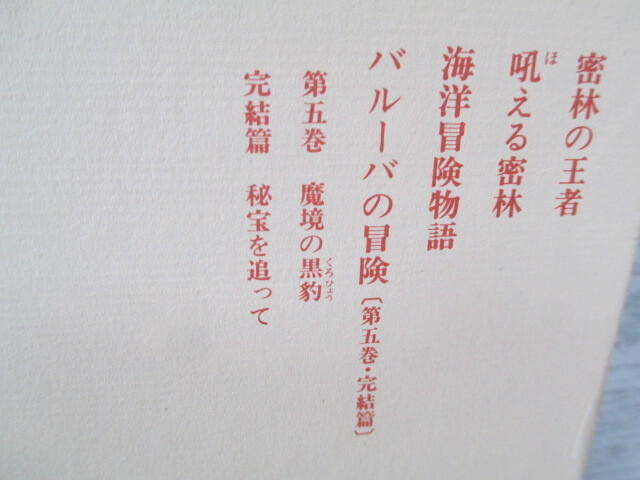 密林の王者
吼える密林
海洋冒険物語
バルーバの冒険〔第五巻・完結篇〕
第五巻　魔境の黒豹
完結篇　秘宝を追って
ほ
くろひょう